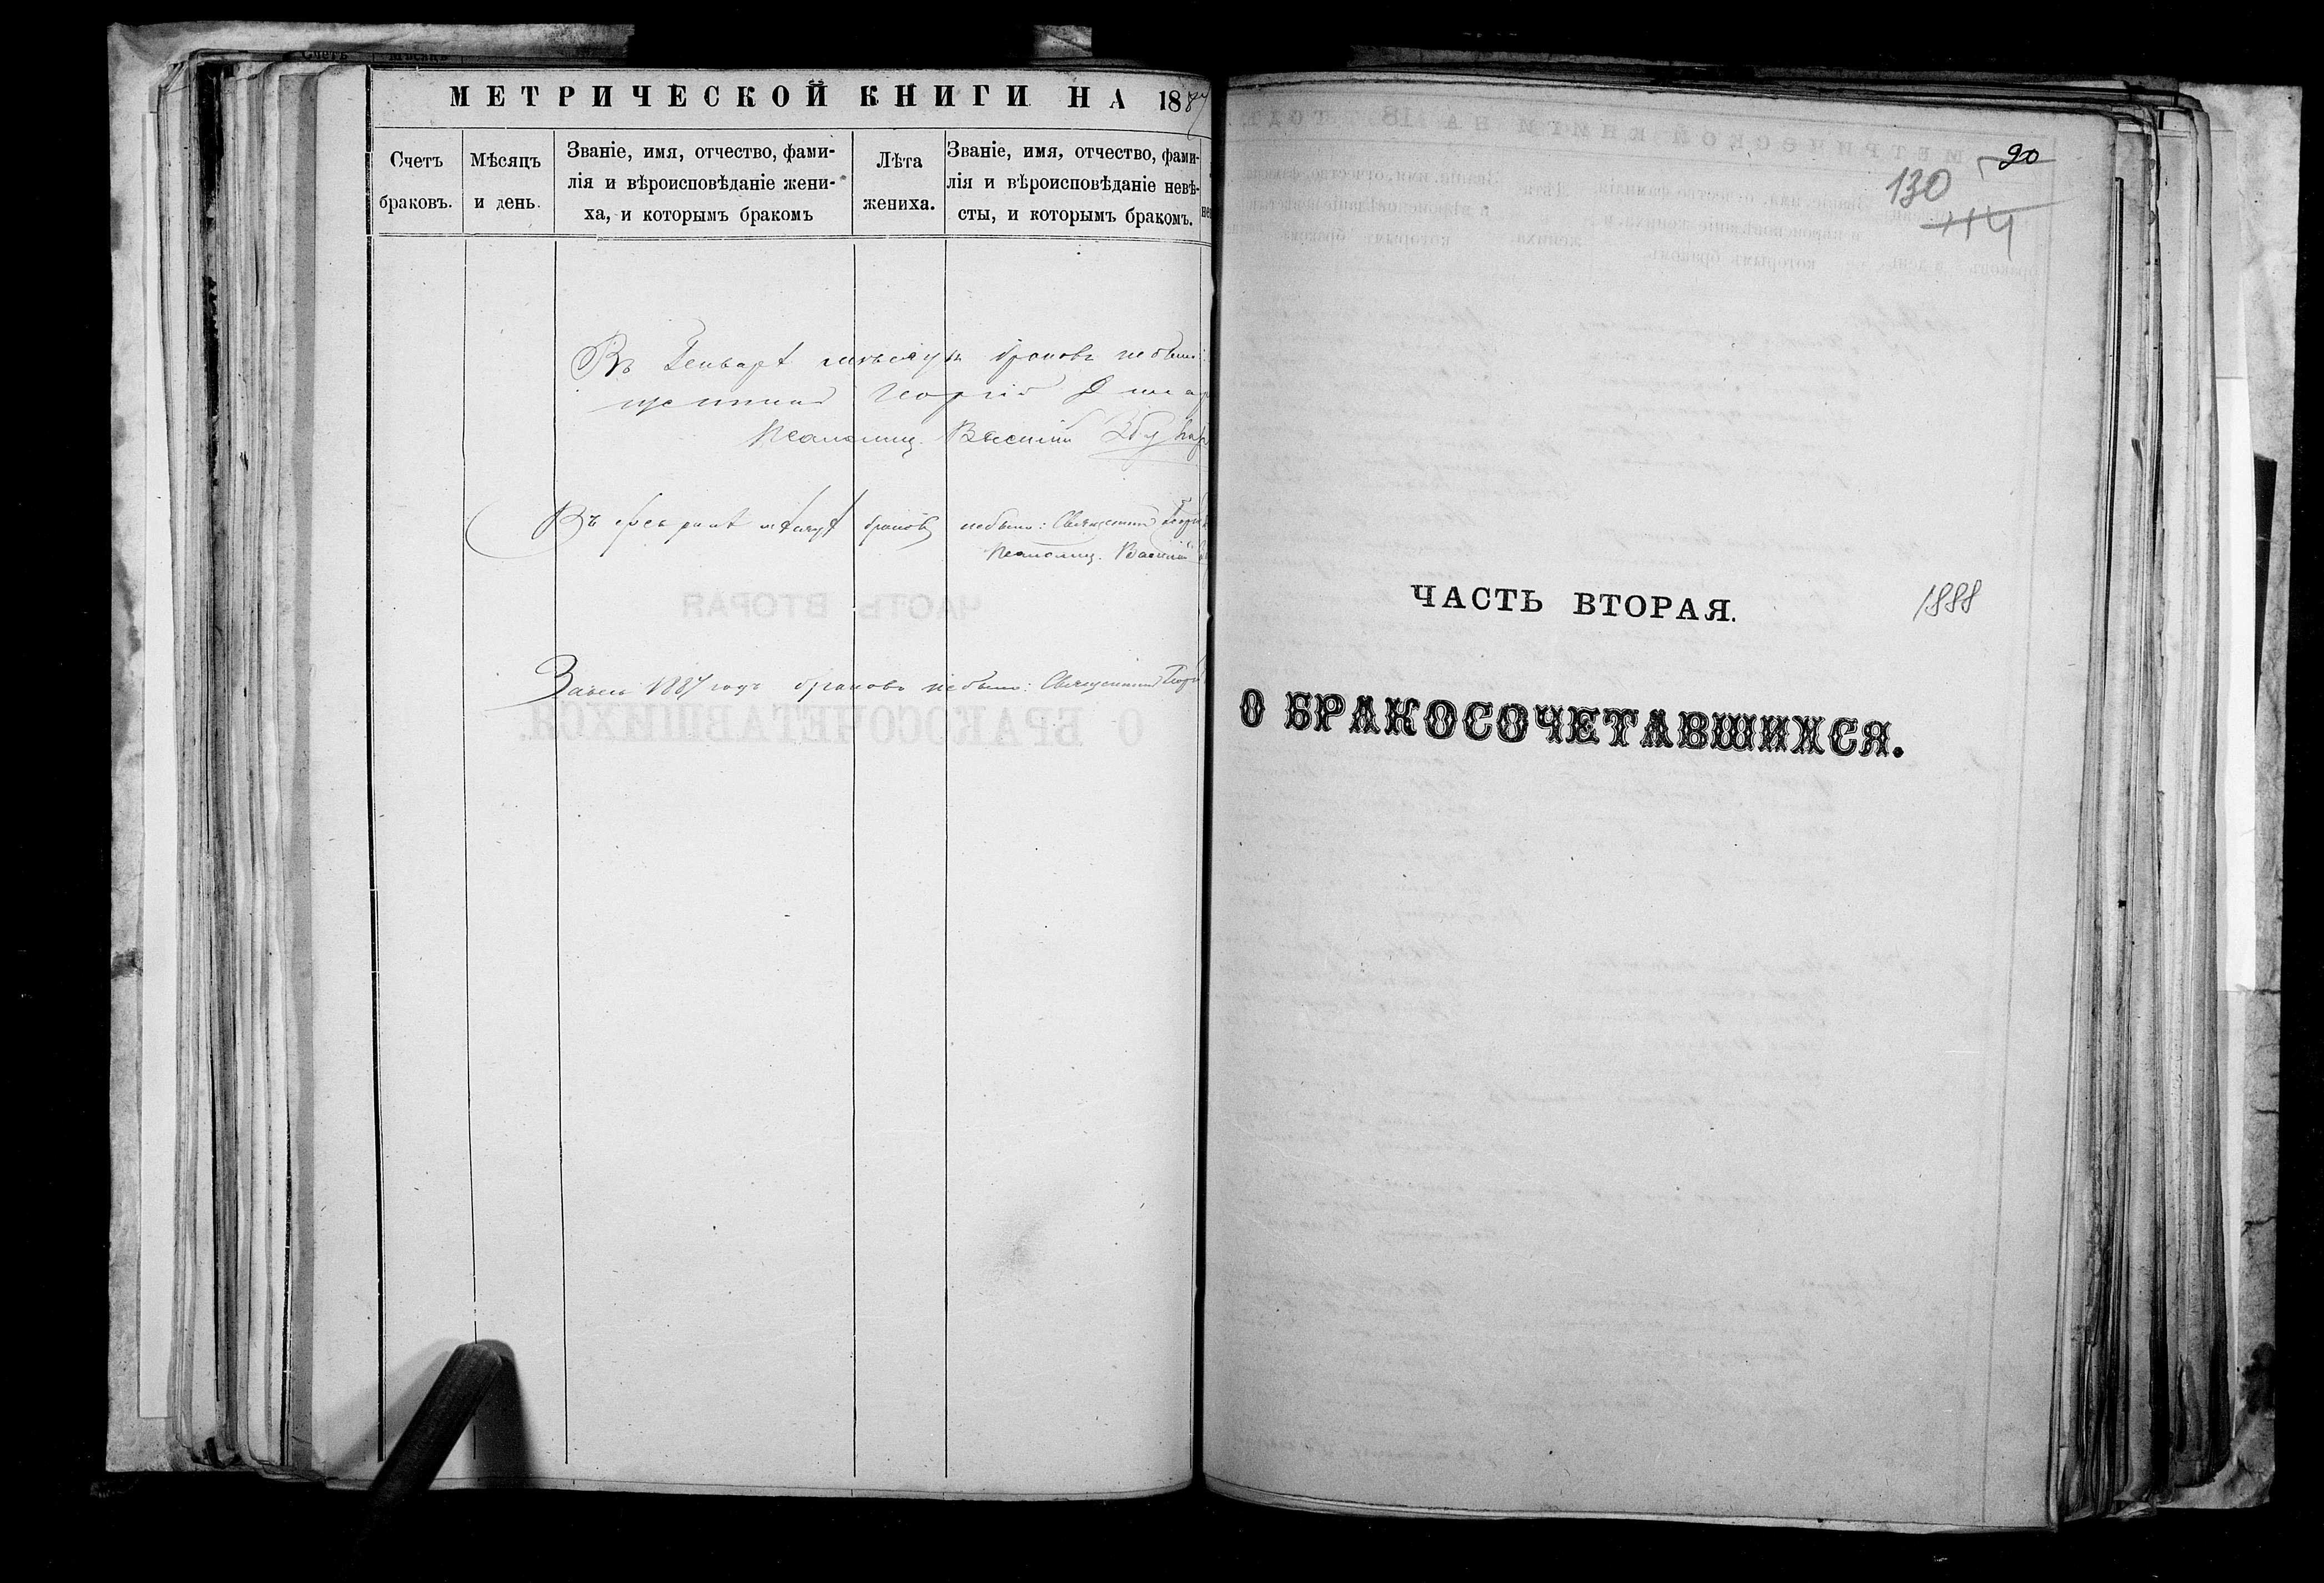 МЕТРИЧЕСКОЙ КНИГИ НА 1887
Счетъ браковъ.
Мѣсяцъ и день.
Званіе, имя, отчество, фами-
лія и вѣроисповѣданіе жени-
ха, и которымъ бракомъ
Лѣта
жениха.
Званіе, имя, отчество, фами-
лія и вѣроисповѣданіе невѣ-
сты, и которымъ бракомъ.
Въ Генварѣ мѣсяцѣ браковъ небыло:
Георгій
Псаломщ. Василій
Въ февралѣ мѣсяцѣ браковъ небыло: Священникъ
Псаломщ. Василій
За весь 1887 годъ браковъ небыло: Священникъ
90
130
114
ЧАСТЬ ВТОРАЯ.
1888
О БРАКОСОЧЕТАВШИХСЯ.